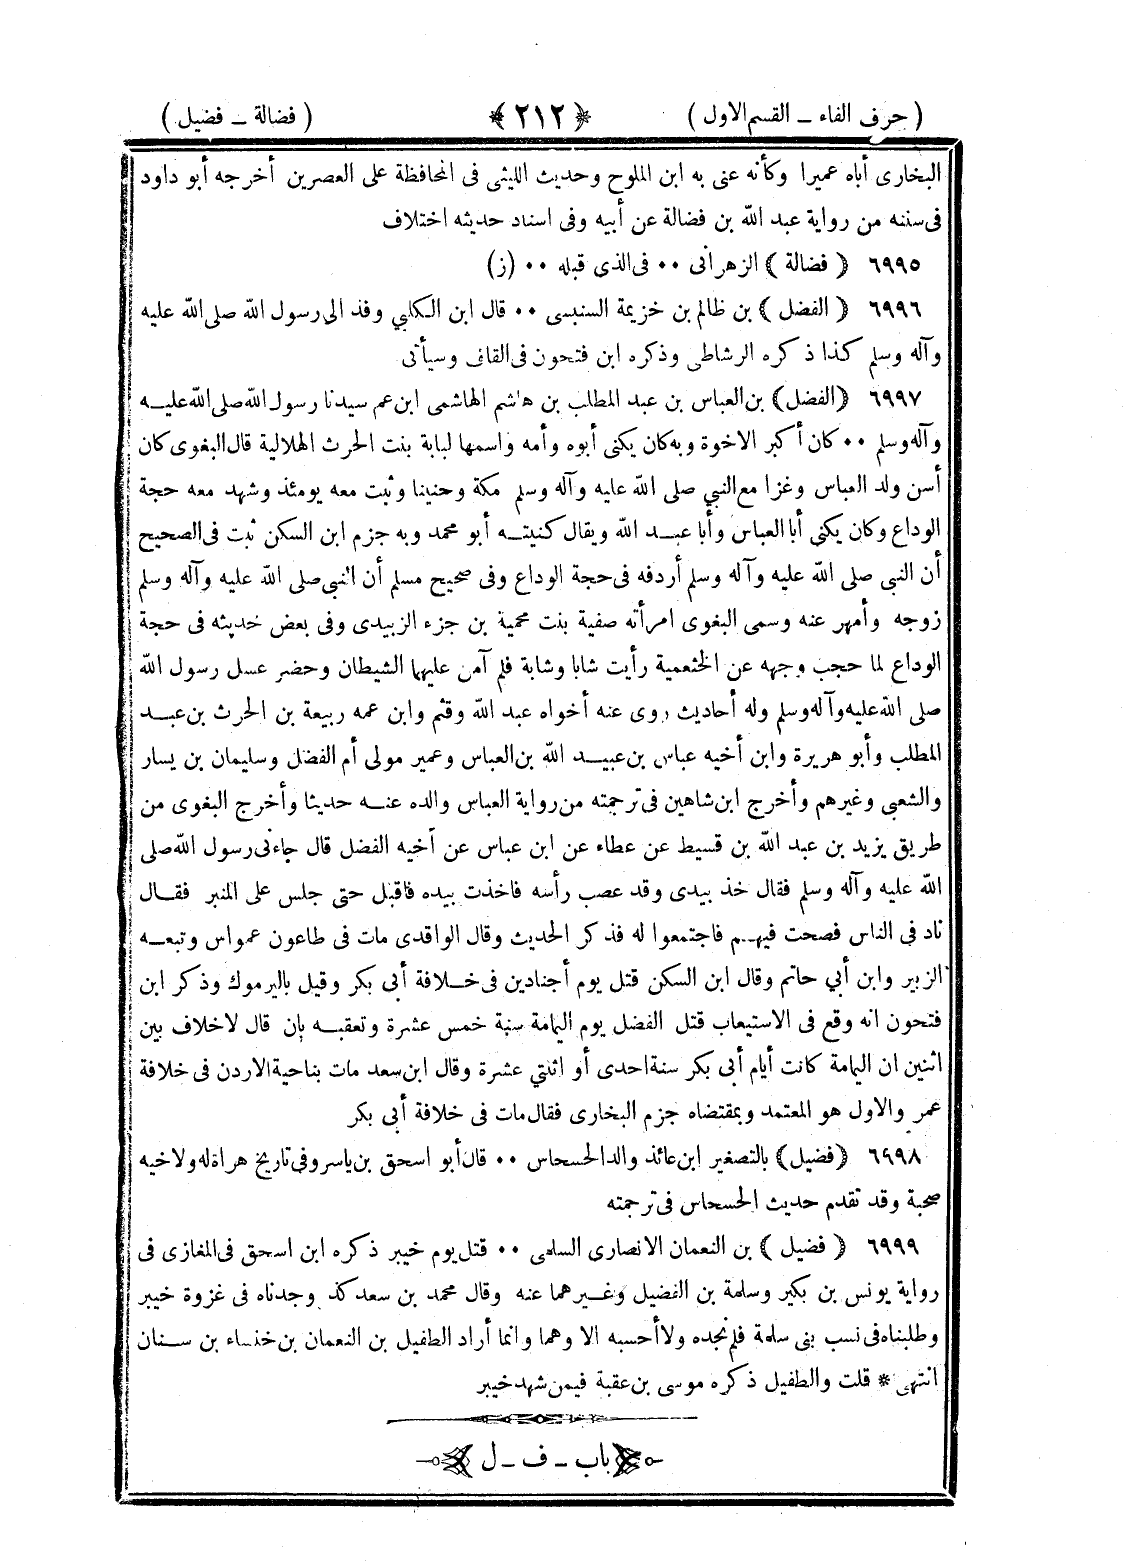 ( حرف الفاء ـ القسم الاول ) ﴿ ٢١٢ ﴾ ( فضالة ـ فضيل )
البخارى أباه عميرا وكأنه عنى به ابن الملوح وحديث الليثى فى المحافظة على العصرين أخرجه أبو داود
فى سننه من رواية عبد الله بن فضالة عن أبيه وفى اسناد حديثه اختلاف
٦٩٩٥ ﴿ فضالة ﴾ الزهرانى ٠٠ فى الذى قبله ٠٠ (ز)
٦٩٩٦ ﴿ الفضل ﴾ بن ظالم بن خزيمة السنبسى ٠٠ قال ابن الكلبي وفد الى رسول الله صلى الله عليه
وآله وسلم كذا ذكره الرشاطى وذكره ابن فتحون فى القاف وسيأتى
٦٩٩٧ ﴿الفضل﴾ بن العباس بن عبد المطلب بن هاشم الهاشمى ابن عم سيدنا رسول الله صلى الله عليه
وآله وسلم ٠٠ كان أكبر الاخوة وبه كان يكنى أبوه وأمه واسمها لبابة بنت الحرث الهلالية قال البغوى كان
أسن ولد العباس وغزا مع النبي صلى الله عليه وآله وسلم مكة وحنينا وثبت معه يومئذ وشهد معه حجة
الوداع وكان يكنى أبا العباس وأبا عبد الله ويقال كنيته أبو محمد وبه جزم ابن السكن ثبت فى الصحيح
أن النبى صلى الله عليه وآله وسلم أردفه فى حجة الوداع وفى صحيح مسلم أن النبى صلى الله عليه وآله وسلم
زوجه وأمهر عنه وسمى البغوى امرأته صفية بنت محمية بن جزء الزبيدى وفى بعض حديثه فى حجة
الوداع لما حجب وجهه عن الخثعمية رأيت شابا وشابة فلم آمن عليهما الشيطان وحضر غسل رسول الله
صلى الله عليه وآله وسلم وله أحاديث روى عنه أخواه عبد الله وقثم وابن عمه ربيعة بن الحرث بن عبد
المطلب وأبو هريرة وابن أخيه عباس بن عبيد الله بن العباس وعمير مولى أم الفضل وسليمان بن يسار
والشعبى وغيرهم وأخرج ابن شاهين فى ترجمته من رواية العباس والده عنه حديثا وأخرج البغوى من
طريق يزيد بن عبد الله بن قسيط عن عطاء عن ابن عباس عن أخيه الفضل قال جاءنى رسول الله صلى
الله عليه وآله وسلم فقال خذ بيدى وقد عصب رأسه فاخذت بيده فاقبل حتى جلس على المنبر فقال
ناد فى الناس فصحت فيهم فاجتمعوا له فذكر الحديث وقال الواقدى مات فى طاعون عمواس وتبعه
الزبير وابن أبي حاتم وقال ابن السكن قتل يوم أجنادين فى خلافة أبى بكر وقيل باليرموك وذكر ابن
فتحون انه وقع فى الاستيعاب قتل الفضل يوم اليمامة سنة خمس عشرة وتعقبه بان قال لاخلاف بين
اثنين ان اليمامة كانت أيام أبى بكر سنة احدى أو اثنتي عشرة وقال ابن سعد مات بناحية الاردن فى خلافة
عمر والاول هو المعتمد وبمقتضاه جزم البخارى فقال مات فى خلافة أبى بكر
٦٩٩٨ ﴿فضيل﴾ بالتصغير ابن عائذ والد الحسحاس ٠٠ قال أبو اسحق بن ياسر وفى تاريخ هراة له ولاخيه
صحبة وقد تقدم حديث الحسحاس فى ترجمته
٦٩٩٩ ﴿ فضيل ﴾ بن النعمان الانصارى السلمى ٠٠ قتل يوم خيبر ذكره ابن اسحق فى المغازى فى
رواية يونس بن بكير وسلمة بن الفضيل وغيرهما عنه وقال محمد بن سعد كذ وجدناه فى غزوة خيبر
وطلبناه فى نسب بنى سلمة فلم نجده ولا أحسبه الا وهما وانما أراد الطفيل بن النعمان بن خنساء بن سنان
انتهى * قلت والطفيل ذكره موسى بن عقبة فيمن شهد خيبر
باب ـ ف ـ ل